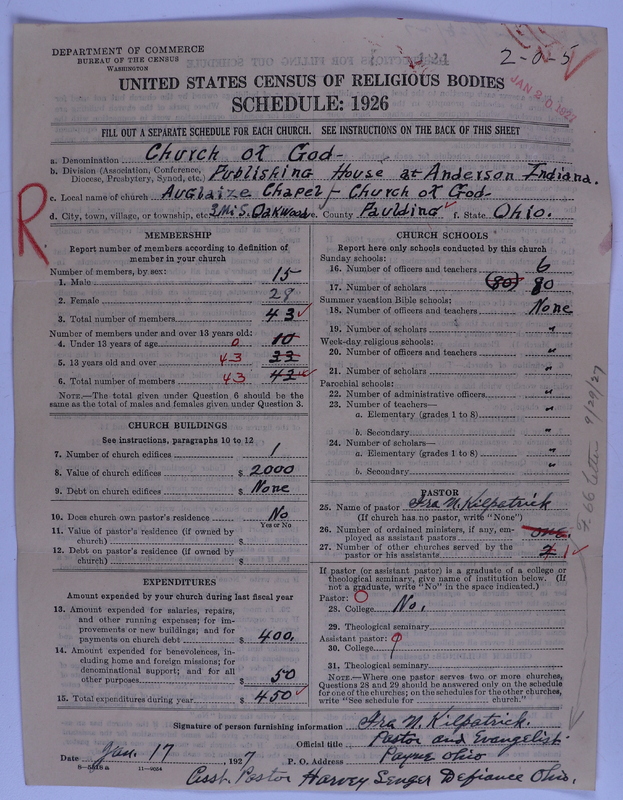 DEPARTMENT OF COMMERCE
BUREAU OF THE CENSUS
WASHINGTON
2-0-5
JAN 20 1927
UNITED STATES CENSUS OF RELIGIOUS BODIES
SCHEDULE: 1926
FILL OUT A SEPARATE SCHEDULE FOR EACH CHURCH. SEE INSTRUCTIONS ON THE BACK OF THIS SHEET
a. Denomination Church of God-
b. Division (Association, Conference, Diocese, Presbytery, Synod, etc.) Publishing House at Anderson Indiana.
c. Local name of church Auglaize Chapel - Church of God-
d. City, town, village, or township, etc. 3 Mi S. Oakwood e. County Paulding f. State Ohio.
R
MEMBERSHIP
Report number of members according to definition of
member in your church
Number of members, by sex:
1. Male 15
2. Female 28
3. Total number of members 43
Number of members under and over 13 years old:
4. Under 13 years of age 0 10
5. 13 years old and over 43 33
6. Total number of members 43 43
NOTE.—The total given under Question 6 should be
same as the total of males and females given under Question 3.
CHURCH BUILDINGS
See instructions, paragraphs 10 to 12
7. Number of church edifices 1
8. Value of church edifices $ 2000
9. Debt on church edifices $ None
10. Does church own pastor's residence No
Yes or No
11. Value of pastor's residence (if owned by
church) $
12. Debt on pastor's residence (if owned by
church) $
EXPENDITURES
Amount expended by your church during last fiscal year
13. Amount expended for salaries, repairs,
and other running expenses; for im-
provements or new buildings; and for
payments on church debt $ 400.
14. Amount expended for benevolences, in-
cluding home and foreign missions; for
denominational support; and for all
other purposes $ 50
15. Total expenditures during year $ 450
CHURCH SCHOOLS
Report here only schools conducted by this church
Sunday schools:
16. Number of officers and teachers 6
17. Number of scholars (80) 80
Summer vacation Bible schools:
18. Number of officers and teachers None
19. Number of scholars "
Week-day religious schools:
20. Number of officers and teachers "
21. Number of scholars "
Parochial schools:
22. Number of administrative officers "
23. Number of teachers—
a. Elementary (grades 1 to 8) "
b. Secondary "
24. Number of scholars—
a. Elementary (grades 1 to 8) "
b. Secondary "
PASTOR
25. Name of pastor Ira N. Kilpatrick
(If church has no pastor, write "None")
26. Number of ordained ministers, if any, em-
ployed as assistant pastors one
27. Number of other churches served by the
pastor or his assistants 2 1
If pastor (or assistant pastor) is a graduate of a college or
theological seminary, give name of institution below. (If
not a graduate, write "No" in the space indicated.)
Pastor: O
28. College No.
29. Theological seminary
Assistant pastor:
30. College
31. Theological seminary
NOTE.—Where one pastor serves two or more churches,
Questions 28 and 29 should be answered only on the schedule
for one of the churches; on the schedules for the other churches,
write "See schedule for church."
F. 66 letter 9/29/27
Signature of person furnishing information Ira N. Kilpatrick
Official title Pastor and Evangelist
Date Jan. 17, 1927 P. O. Address Payne Ohio
8-5518 a 11-9054
Asst. Pastor Harvey Senger Defiance Ohio.